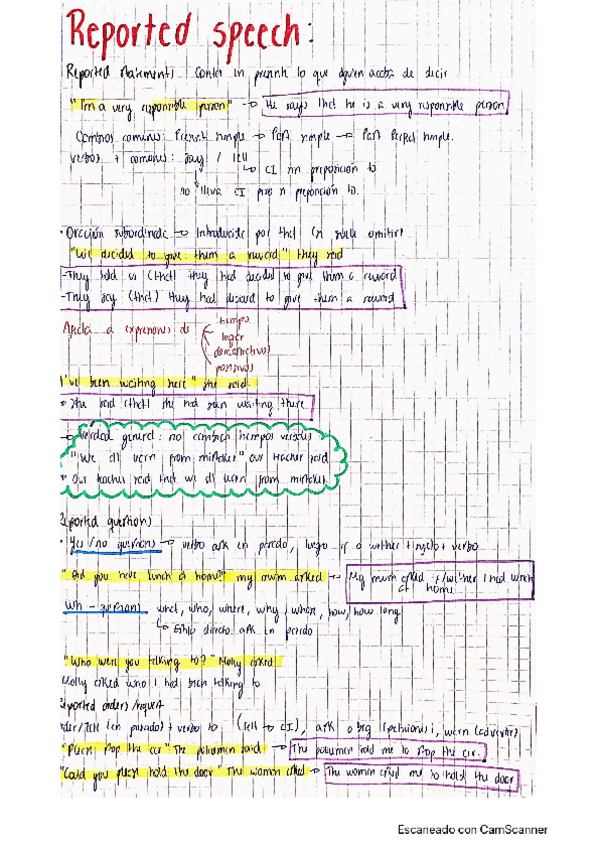 Reported speech:
Reported statements: Contar in presente lo que alguien acaba de decir
"I'm a very responsible person" → He says that he is a very responsible person
Cambios comunes: Present simple → Past simple → Past Perfect simple.
verbos + comunes: say / tell
↳ CI sin preposición to
no lleva CI pero si preposición to.
• Oración subordinada → Introducida por that (se suele omitir)
"We decided to give them a reward" they said
-They told us (that) they had decided to give them a reward
-They say (that) they had decided to give them a reward
Afecta a expresiones de
tiempo
lugar
demostrativos
posesivos
I've been waiting here" she said.
She said (that) she had been waiting there
verdad general: no cambian tiempos verbales
"We all learn from mistakes" our teacher said
Our teacher said that we all learn from mistakes
Reported questions
• Yes/no questions → verbo ask en pasado, luego if o wether + sujeto + verbo
"Did you have lunch at home?" my mum asked → My mum asked if/wether I had lunch
at home
Wh - questions what, who, where, why, when, how, how long
↳ Estilo directo: ask en pasado
"Who were you talking to?" Molly asked.
Molly asked who I had been talking to
Reported orders / request
order/tell (en pasado) + verbo to (tell → CI), ask o beg (peticiones), warn (advertir)
"Please stop the car" The policeman said → The policeman told me to stop the car.
"Could you please hold the door" The woman asked → The woman asked me to hold the door
Escaneado con CamScanner